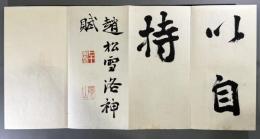 以自
持
趙松雪洛神
賦